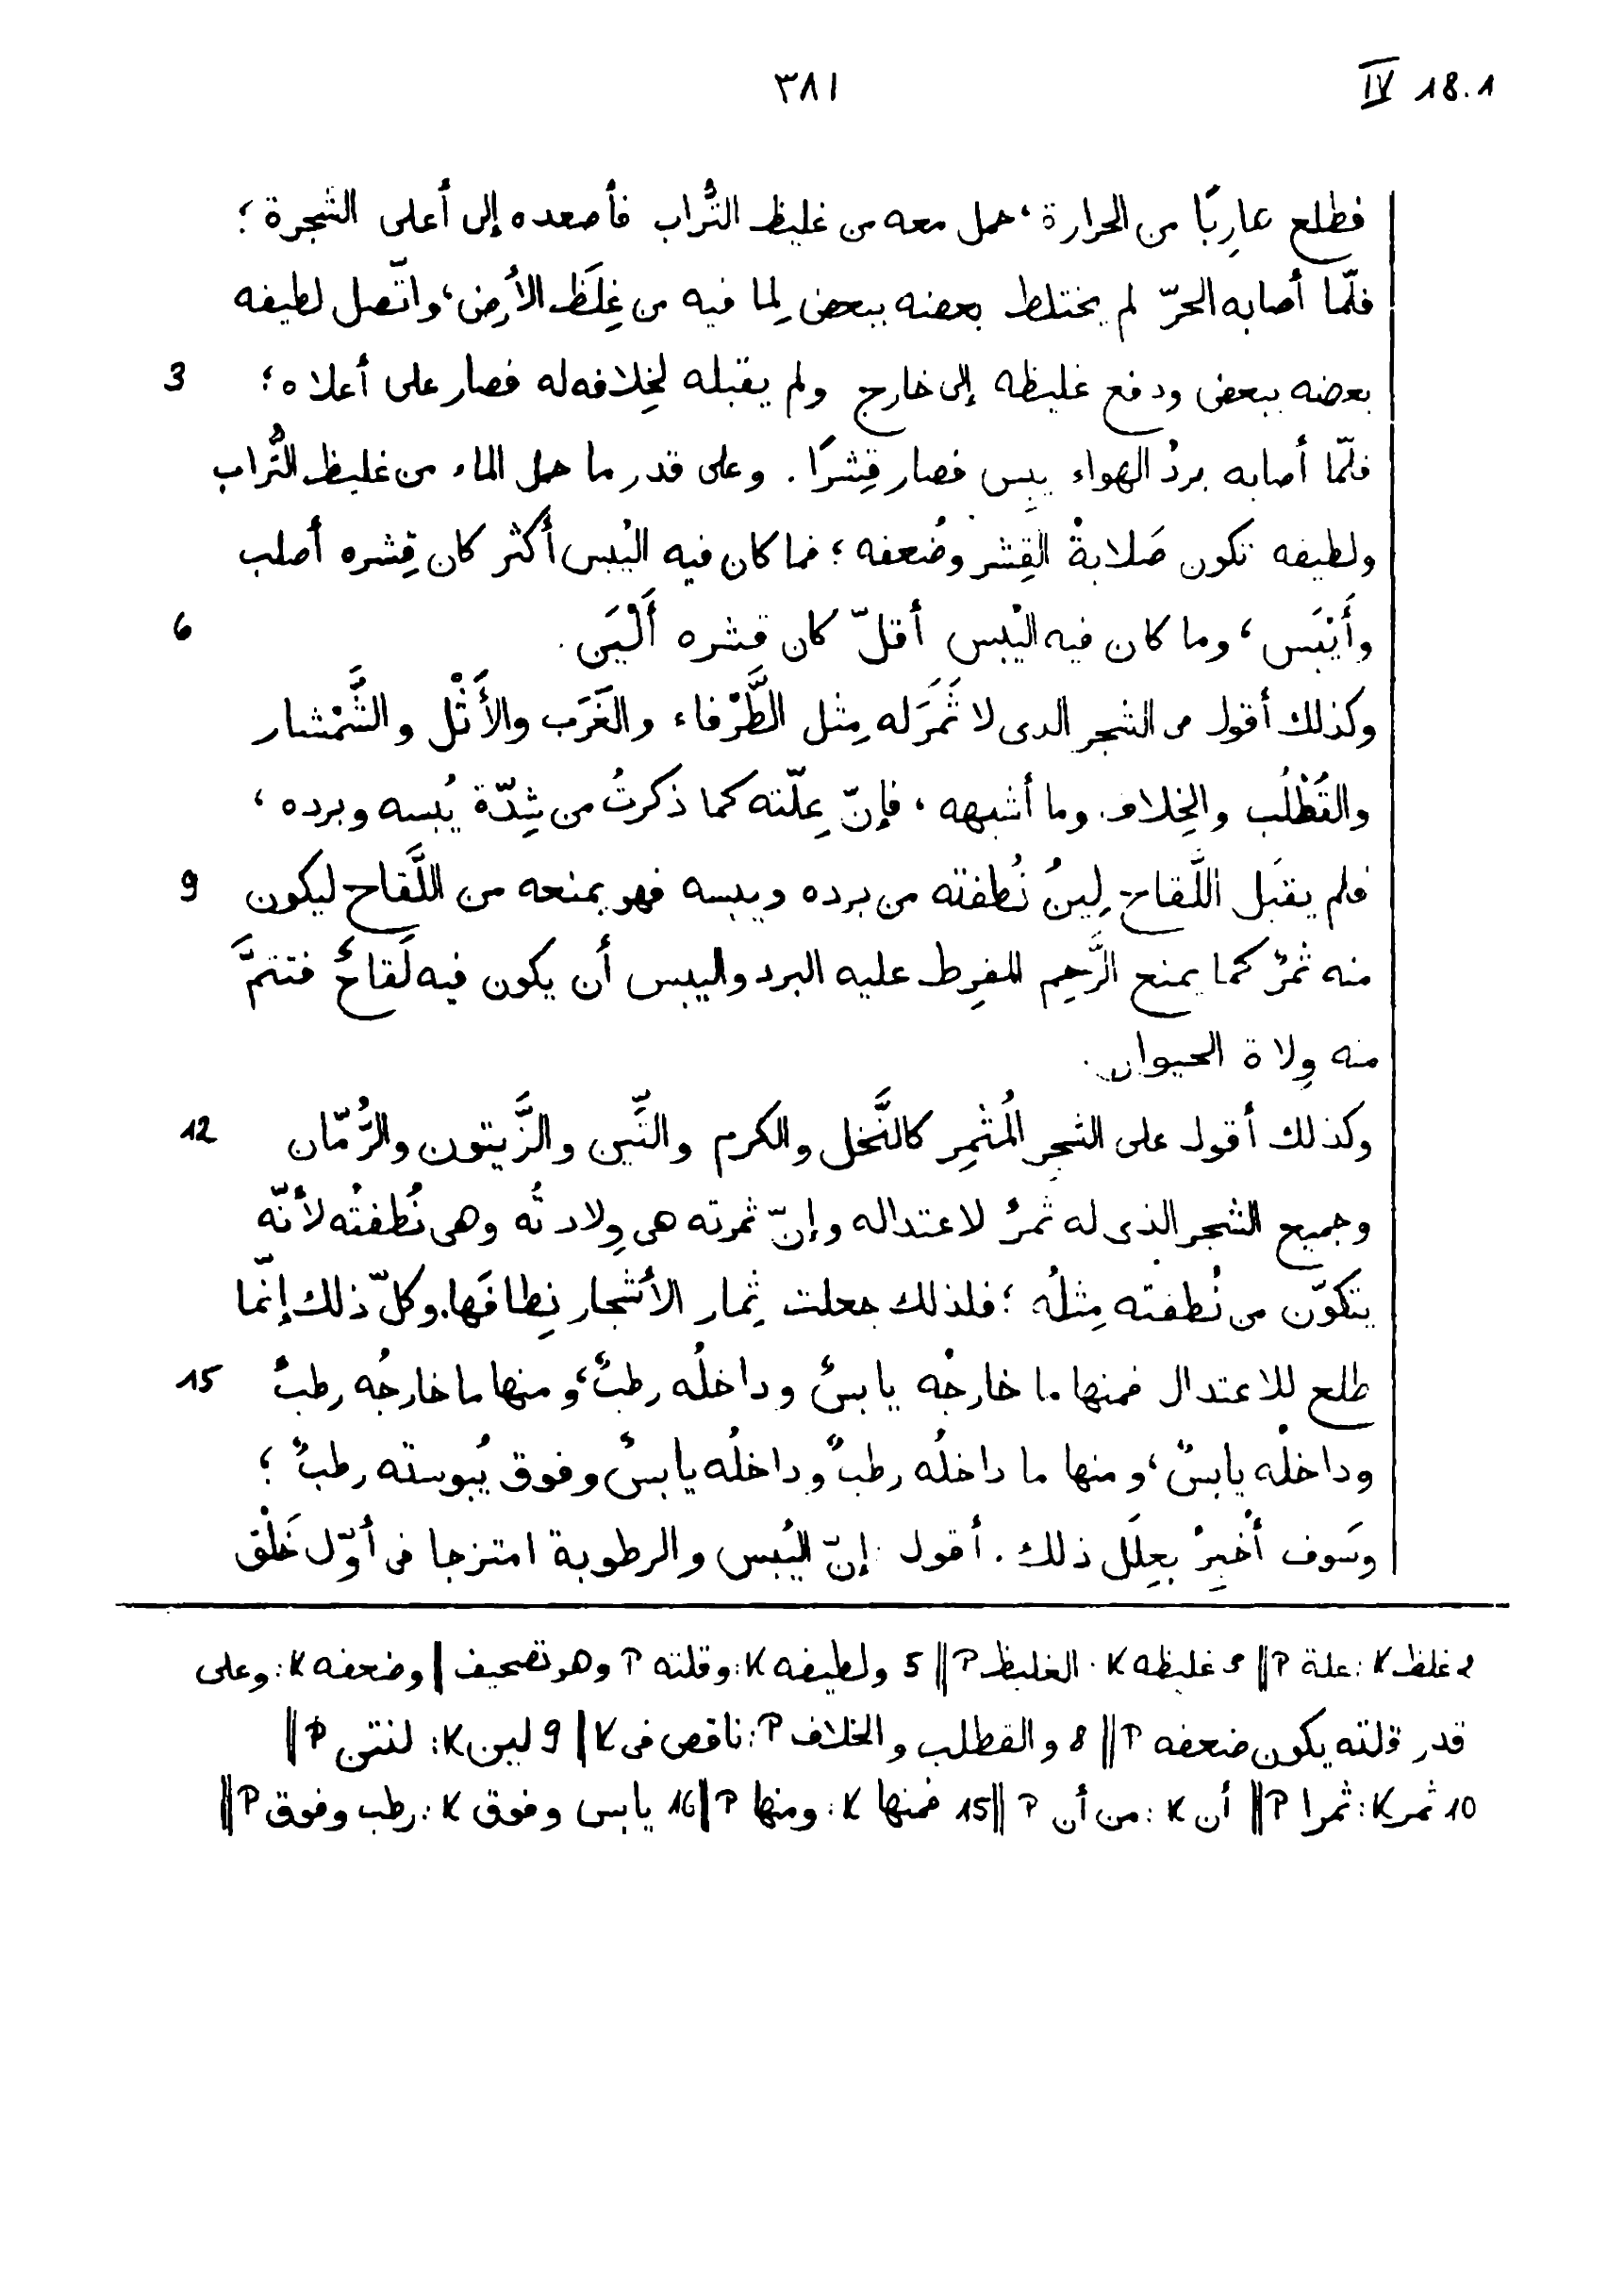 ٣٨١
IV 18.1
فطلع هارِبًا من الحرارة، حمل معه من غليظ التُّراب فأصعده إلى أعلى الشجرة؛
فلمّا أصابه الحرّ لم يختلط بعضه ببعض لِما فيه من غِلَظ الأرض، واتّصل لطيفه
بعضه ببعض ودفع غليظه إلى خارج ولم يقبله لخِلافه له فصار على أعلاه؛ 3
فلمّا أصابه بردُ الهواء يبِس فصار قِشرًا. وعلى قدر ما حمل الماء من غليظ التُّراب
ولطيفه تكون صَلابةُ القِشر وضُعفه؛ فما كان فيه اليُبس أكثر كان قِشره أصلب
وأَيْبَس، وما كان فيه اليُبس أقلّ كان قشره أَلْيَن. 6
وكذلك أقول من الشجر الدى لا ثَمَرَ له مِثل الطَّرْفاء والغَرَب والأَثْل والشَّمْشار
والقُطْلُب والخِلاف. وما أشبهه، فإنّ عِلّته كما ذكرتُ من شِدّة يُبسه وبرده،
فلم يقبَل اللَّقاح لِينُ نُطفته من برده ويبسه فهو يمنعه من اللَّقاح ليكون 9
منه ثمرٌ كما يمنع الرَّحِم المفرِط عليه البرد واليبس أن يكون فيه لَقاحٌ فتتمَّ
منه وِلاة الحيوان.
وكذلك أقول على الشجر المُثْمِر كالنَّخل والكرم والتّين والزَّيتون والرُّمّان 12
وجميع الشجر الذى له ثمرٌ لاعتداله وإنّ ثمرته هى وِلادتُه وهى نُطفتُه لأنّه
يتكوّن من نُطفته مِثلُه؛ فلذلك جعلت ثِمار الأشجار نِطافَها. وكلّ ذلك إنّما
طلع للاعتدال فمنها ما خارجُه يابسٌ وداخلُه رطبٌ، ومنها ما خارجُه رطبٌ 15
وداخلُه يابسٌ، ومنها ما داخلُه رطبٌ وداخلُه يابسٌ وفوق يُبوسته رطبٌ؛
وسَوف أُخبِرُ بعِلَل ذلك. أقول إنّ اليُبس والرطوبة امتزجا فى أوّل خَلْق
2 غلظ K: علة P || 3 غليظه K: الغليظ P || 5 ولطيفه K: وقلته P وهو تصحيف | وضعفه K: وعلى
قدر قلته يكون ضعفه P || 8 والقطلب والخلاف P: ناقص فى K | 9 لين K: لنتن P ||
10 ثمر K: ثمرا P || أن K: من أن P || 15 فمنها K: ومنها P || 16 يابس وفوق K: رطب وفوق P ||